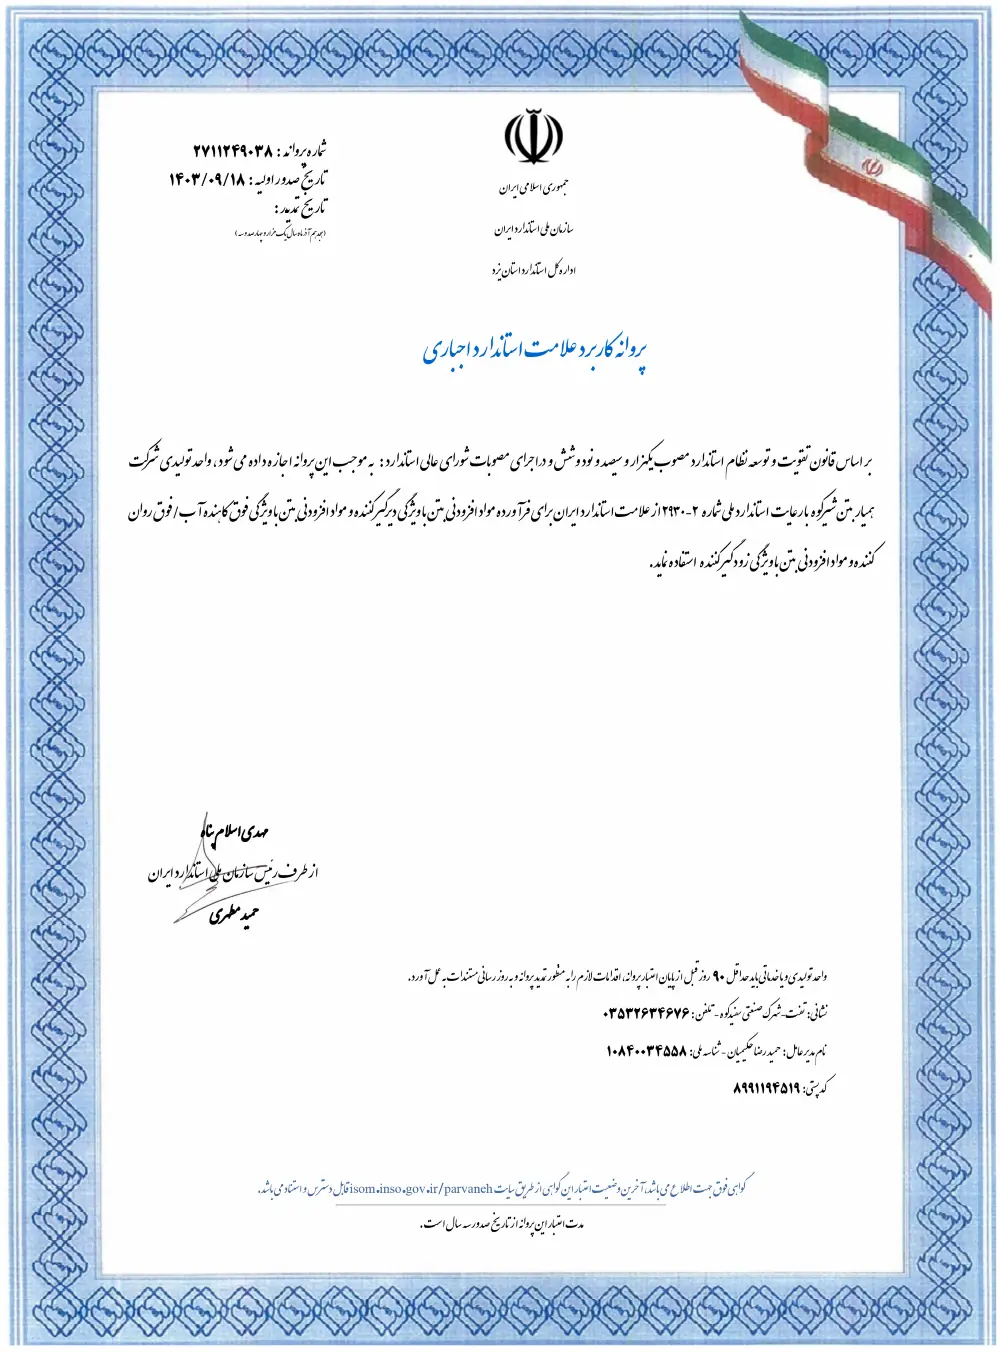 جمهوری اسلامی ایران
سازمان ملی استاندارد ایران
اداره کل استاندارد استان یزد
شماره پروانه : ۲۷۱۱۲۴۹۰۳۸
تاریخ صدور اولیه : ۱۴۰۳/۰۹/۱۸
تاریخ تمدید :
(هجدهم آذر ماه سال یک هزار و چهارصد و سه)
پروانه کاربرد علامت استاندارد اجباری
بر اساس قانون تقویت و توسعه نظام استاندارد مصوب یکهزار و سیصد و نود و شش و در اجرای مصوبات شورای عالی استاندارد : به موجب این پروانه اجازه داده می شود ، واحد تولیدی شرکت
همیار بتن شیرکوه با رعایت استاندارد ملی شماره ۲-۲۹۳۰ از علامت استاندارد ایران برای فرآورده مواد افزودنی بتن با ویژگی دیرگیر کننده و مواد افزودنی بتن با ویژگی فوق کاهنده آب / فوق روان
کننده و مواد افزودنی بتن با ویژگی زودگیر کننده استفاده نماید.
مهدی اسلام پناه
از طرف رئیس سازمان ملی استاندارد ایران
حمید مطهری
واحد تولیدی و یا خدماتی باید حداقل ۹۰ روز قبل از پایان اعتبار پروانه، اقدامات لازم را به منظور تمدید پروانه و به روز رسانی مستندات به عمل آورد.
نشانی: تفت-شهرک صنعتی سفیدکوه - تلفن: ۰۳۵۳۲۶۳۴۶۷۶
نام مدیر عامل: حمیدرضا حکیمیان - شناسه ملی: ۱۰۸۴۰۰۳۴۵۵۸
کد پستی: ۸۹۹۱۱۹۴۵۱۹
گواهی فوق جهت اطلاع می باشد، آخرین وضعیت اعتبار این گواهی از طریق سایت isom.inso.gov.ir/parvaneh قابل دسترس و استناد می باشد.
مدت اعتبار این پروانه از تاریخ صدور سه سال است.